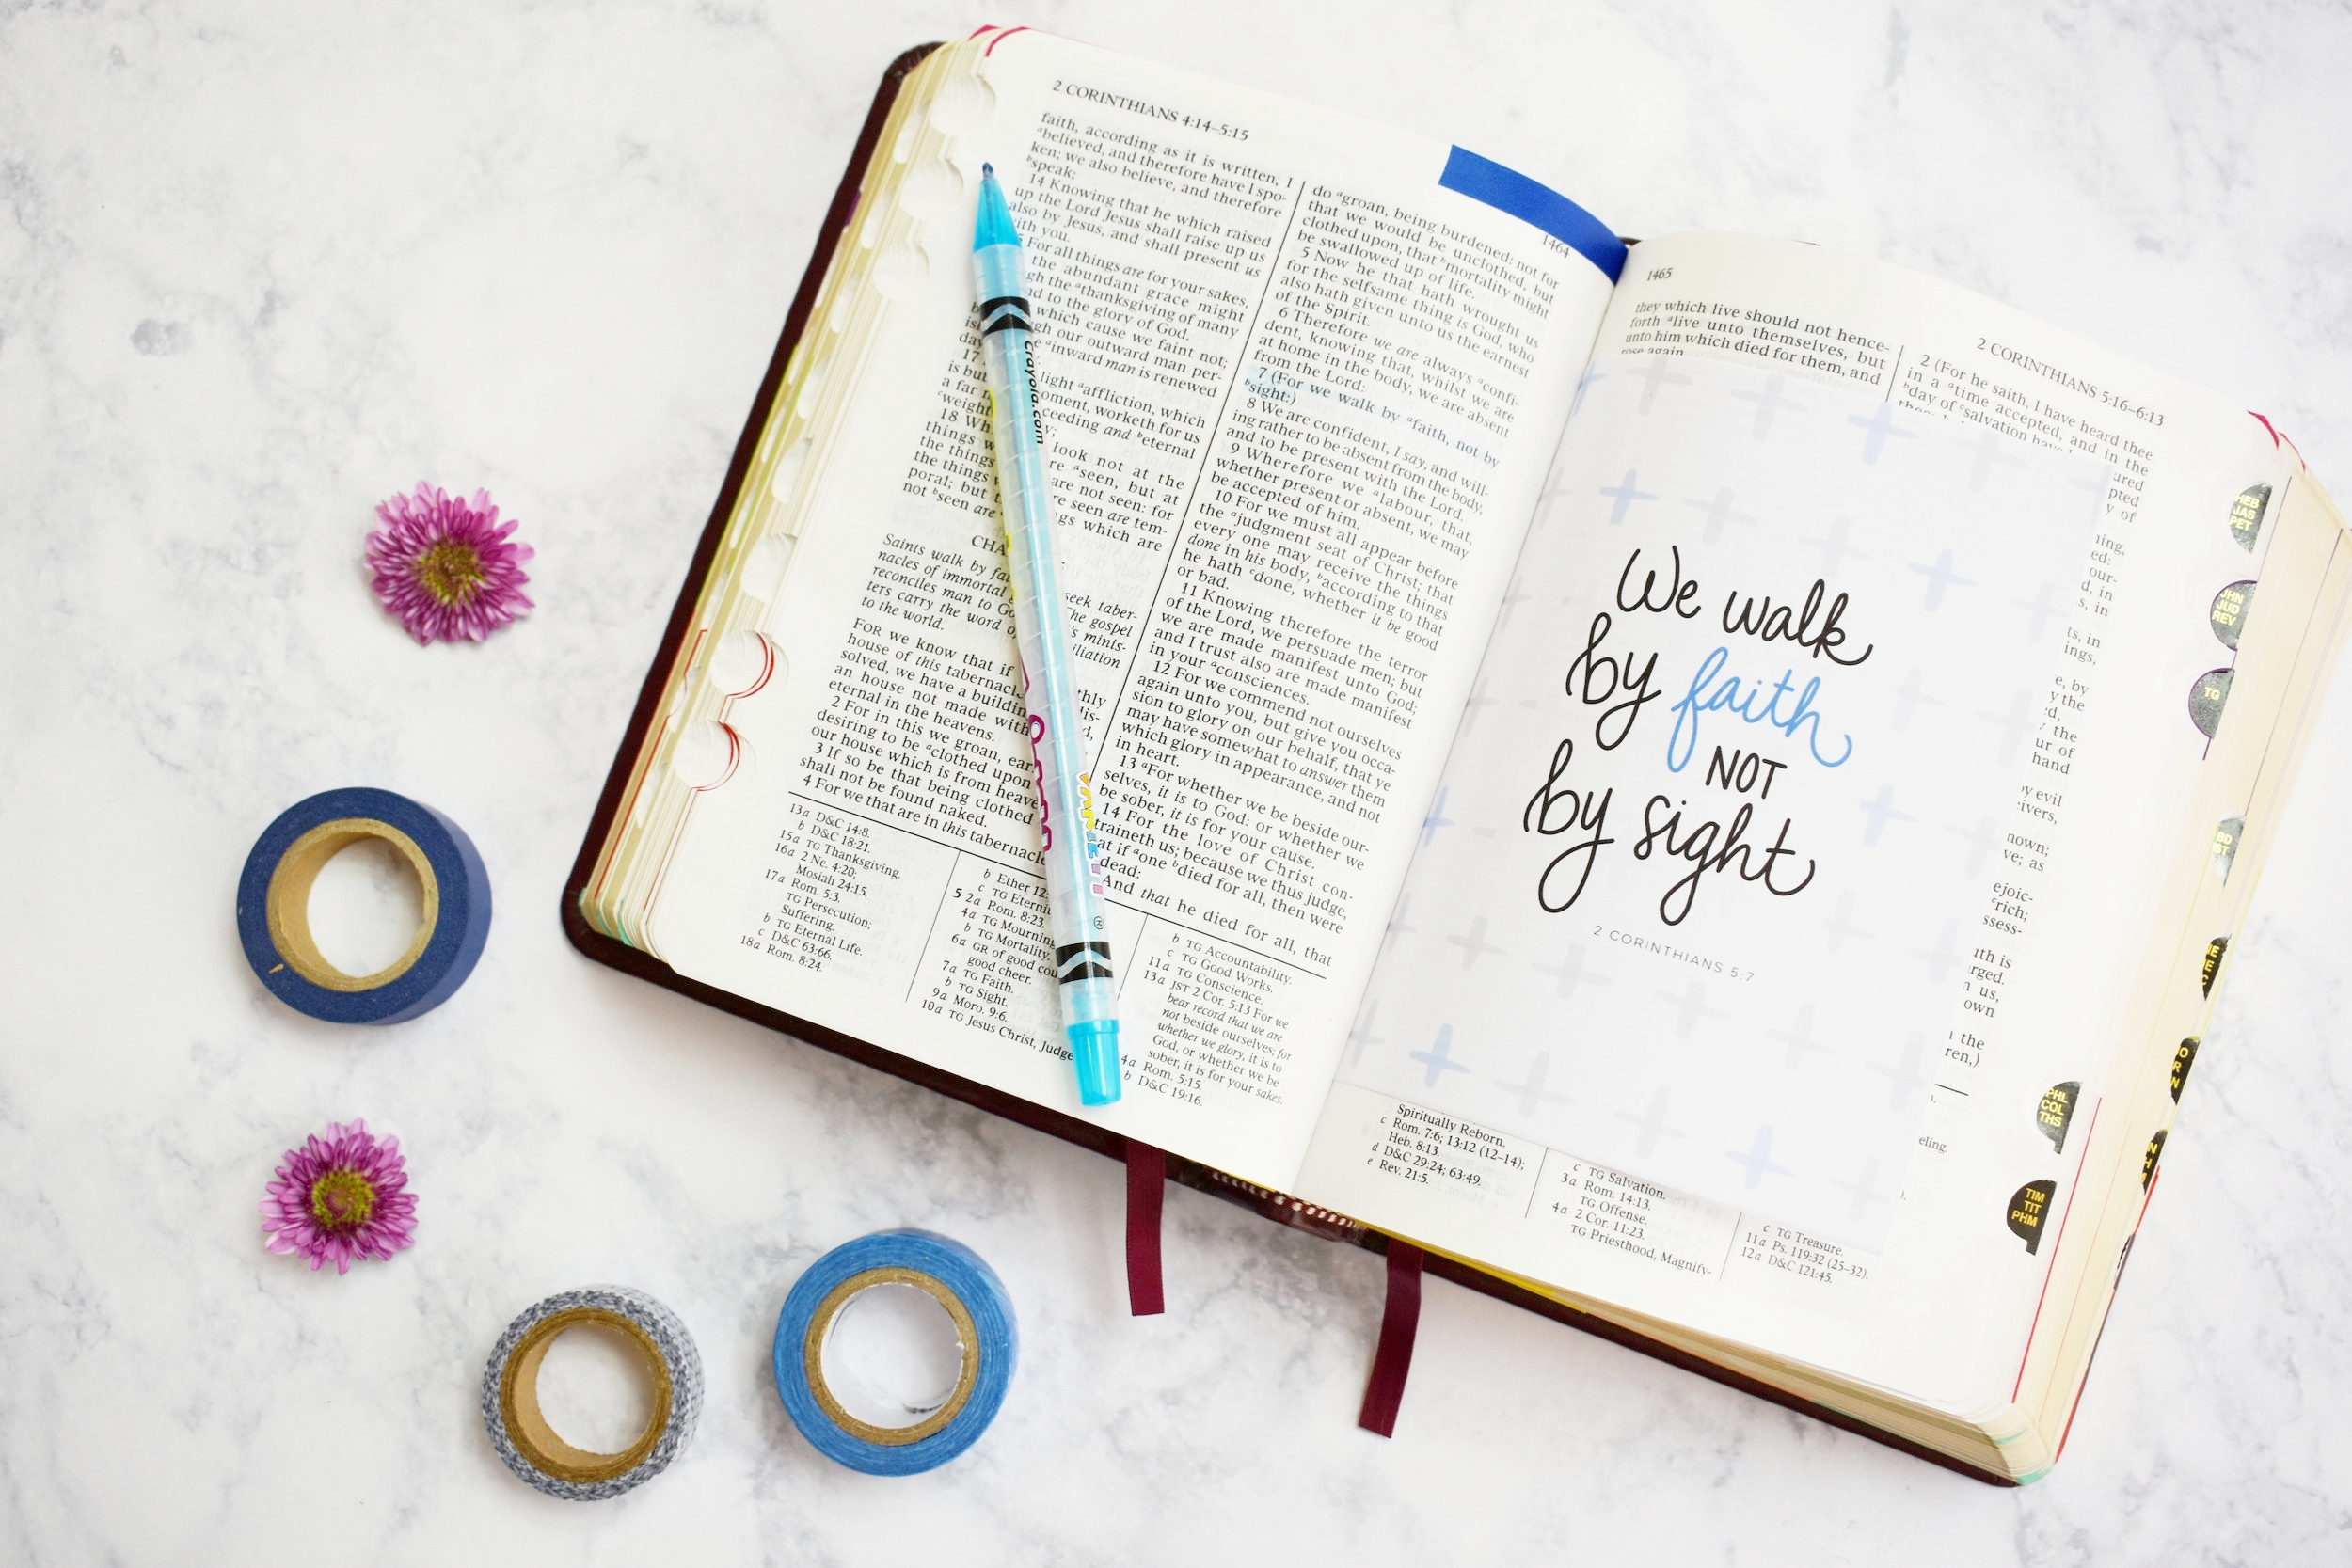 2 CORINTHIANS 4:14–5:15
faith, according as it is written, I
ᵃbelieved, and therefore have I spo-
ken; we also believe, and therefore
ᵇspeak;
14 Knowing that he which raised
up the Lord Jesus shall raise up us
also by Jesus, and shall present us
with you.
For all things are for your sakes,
the abundant grace might
the ᵃthanksgiving of many
to the glory of God.
which cause we faint not;
our outward man per-
ᵃinward man is renewed
day
17
light ᵃaffliction, which
is but
worketh for us
a far
and ᵇeternal
ᶜweight
18
look not at the
things
ᵃseen, but at
the things
are not seen: for
the things
seen are tem-
poral; but
which are
not ᵇseen are
Saints walk by
seek taber-
nacles of immortal
The gospel
reconciles man to
minis-
ters carry the word
to the world.
FOR we know that if
house of this
solved, we have a building
an house not made with
eternal in the heavens.
2 For in this we groan,
desiring to be ᵃclothed upon
our house which is from
3 If so be that being clothed
shall not be found naked.
4 For we that are in this
13a D&C 14:8.
b D&C 18:21.
15a TG Thanksgiving.
16a 2 Ne. 4:20;
Mosiah 24:15.
17a Rom. 5:3.
TG Persecution;
Suffering.
b TG Eternal Life.
c D&C 63:66.
18a Rom. 8:24.
b Ether
c TG
5 2a Rom. 8:23.
4a TG Mourning
b TG Mortality.
6a GR of good
good cheer.
7a TG Faith.
b TG Sight.
9a Moro. 9:6.
10a TG Jesus Christ, Judge
1464
do ᵃgroan, being burdened: not for
that we would be unclothed, but
clothed upon, that ᵇmortality might
be swallowed up of life.
5 Now he that hath wrought us
for the selfsame thing is God, who
also hath given unto us the earnest
of the Spirit.
6 Therefore we are always ᵃconfi-
dent, knowing that, whilst we are
at home in the body, we are absent
from the Lord:
7 (For we walk by ᵃfaith, not by
ᵇsight:)
8 We are confident, I say, and will-
ing rather to be absent from the body,
and to be present with the Lord.
9 Wherefore we ᵃlabour, that,
whether present or absent, we may
be accepted of him.
10 For we must all appear before
the ᵃjudgment seat of Christ; that
every one may receive the things
done in his body, ᵇaccording to that
he hath ᶜdone, whether it be good
or bad.
11 Knowing therefore the terror
of the Lord, we persuade men; but
we are made manifest unto God;
and I trust also are made manifest
in your ᵃconsciences.
12 For we commend not ourselves
again unto you, but give you occa-
sion to glory on our behalf, that ye
may have somewhat to answer them
which glory in appearance, and not
in heart.
13 ᵃFor whether we be beside our-
selves, it is to God: or whether we
be sober, it is for your cause.
14 For the love of Christ con-
straineth us; because we thus judge,
at if ᵃone ᵇdied for all, then were
dead:
And that he died for all, that
b TG Accountability.
c TG Good Works.
11a TG Conscience.
13a JST 2 Cor. 5:13 For we
bear record that we are
not beside ourselves; for
whether we glory, it is to
God, or whether we be
sober, it is for your sakes.
4a Rom. 5:15.
b D&C 19:16.
Crayola.com
®
1465
2 CORINTHIANS 5:16–6:13
they which live should not hence-
forth ᵃlive unto themselves, but
unto him which died for them, and
rose again.
2 (For he saith, I have heard thee
in a ᵃtime accepted, and in the
ᵇday of ᶜsalvation
We walk
by faith
NOT
by sight
2 CORINTHIANS 5:7
Spiritually Reborn.
c Rom. 7:6; 13:12 (12–14);
Heb. 8:13.
d D&C 29:24; 63:49.
e Rev. 21:5.
c TG Salvation.
3a Rom. 14:13.
TG Offense.
4a 2 Cor. 11:23.
TG Priesthood, Magnify-
c TG Treasure.
11a Ps. 119:32 (25–32).
12a D&C 121:45.
HEB
JAS
PET
JHN
JUD
REV
TG
PHL
COL
THS
TIM
TIT
PHM